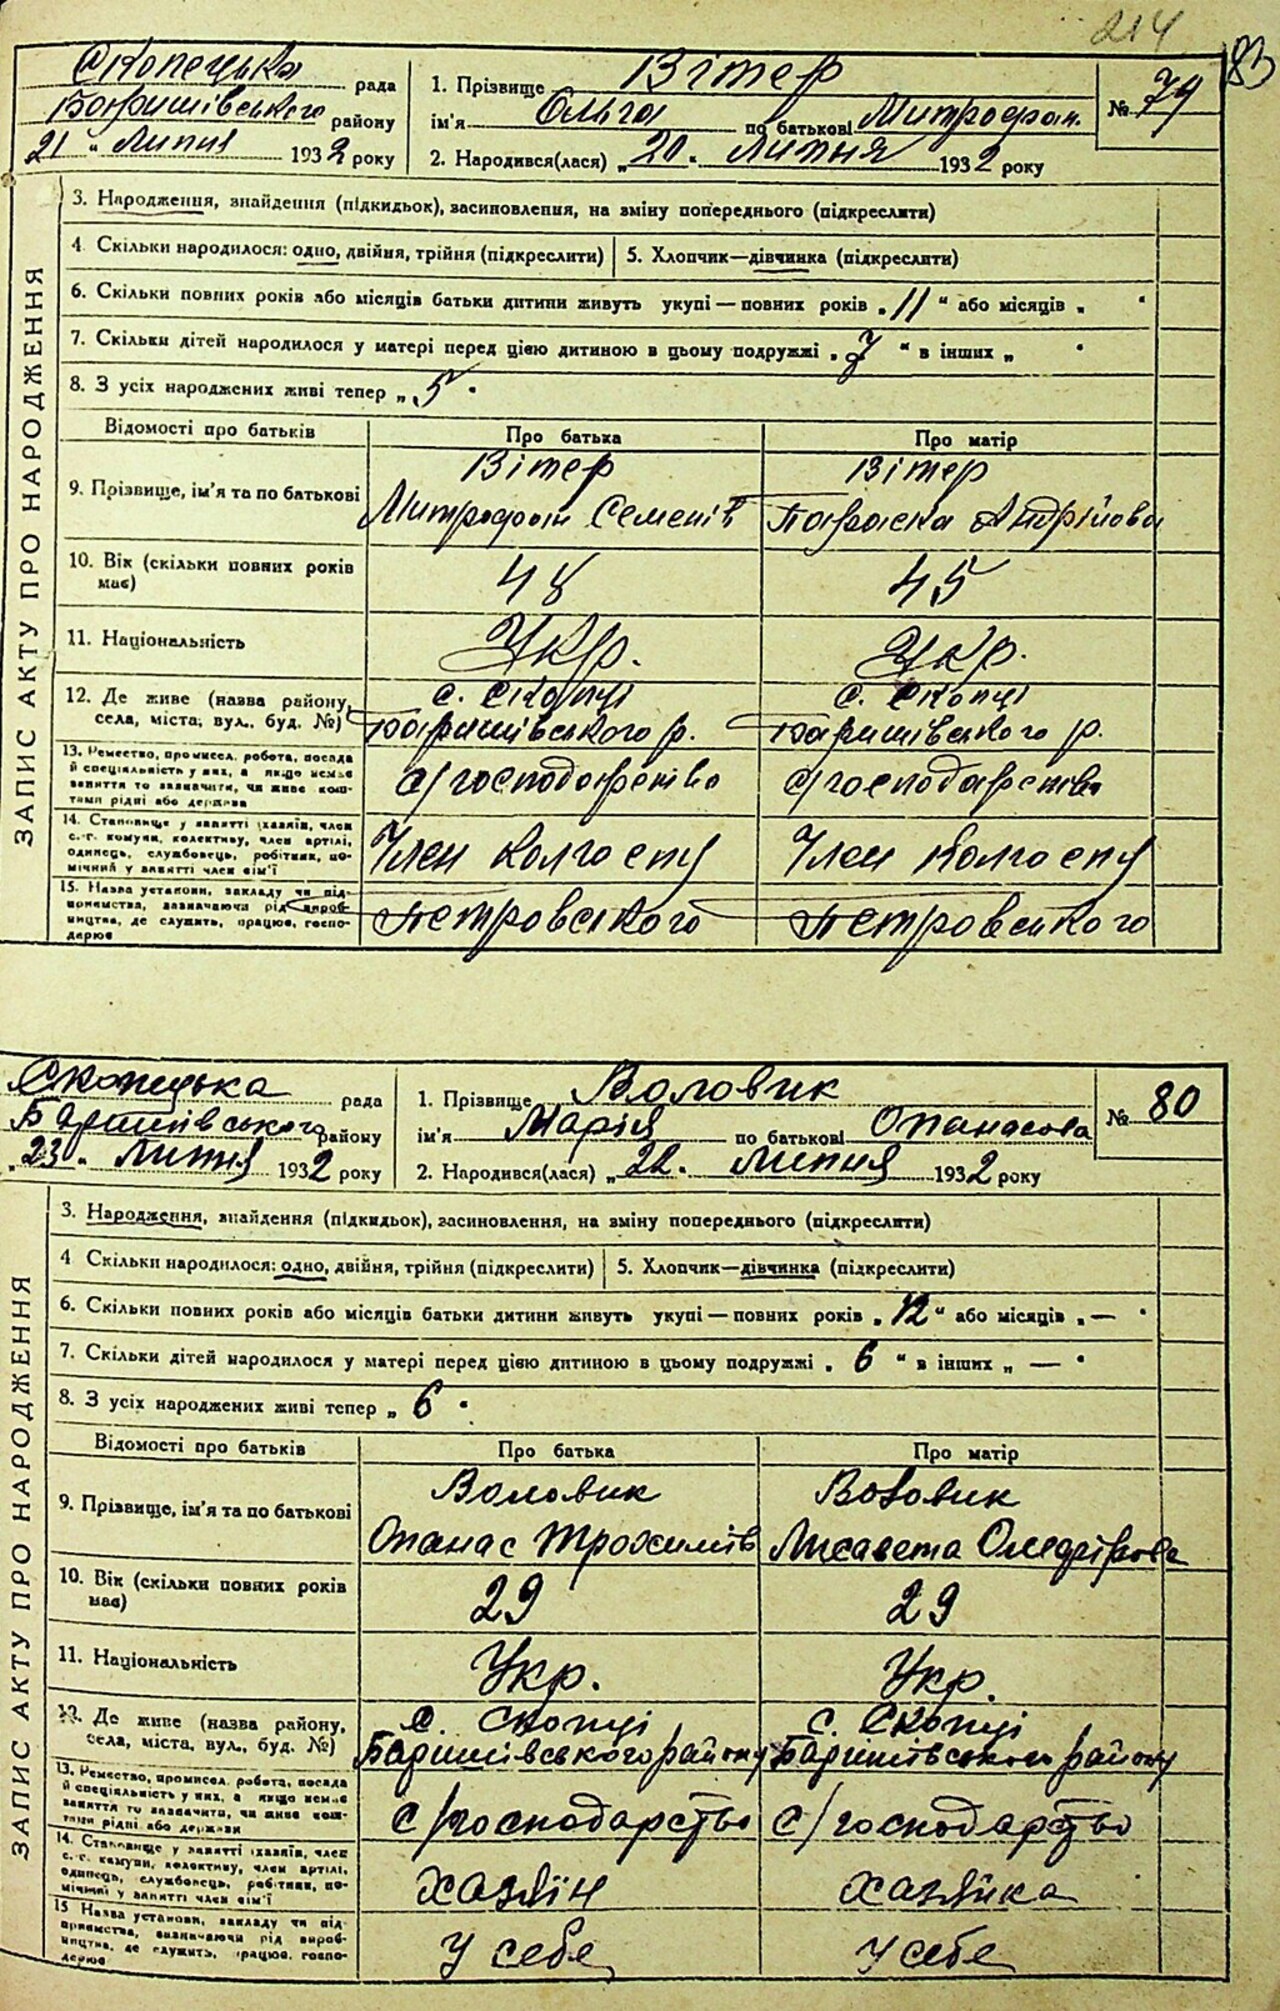 214
83
Скопецька рада
Баришівського району
21 " Липня 1932 року
1. Прізвище Вітер
ім'я Ольга по батькові Митрофан.
2. Народився(лася) „20" Липня 1932 року
№ 79
ЗАПИС АКТУ ПРО НАРОДЖЕННЯ
3. Народження, знайдення (підкидьок), засиновлення, на зміну попереднього (підкреслити)
4 Скільки народилося: одно, двійня, трійня (підкреслити) 5. Хлопчик—дівчинка (підкреслити)
6. Скільки повних років або місяців батьки дитини живуть укупі — повних років „11" або місяців „ "
7. Скільки дітей народилося у матері перед цією дитиною в цьому подружжі „7" в інших „ "
8. З усіх народжених живі тепер „5"
Відомості про батьків Про батька Про матір
9. Прізвище, ім'я та по батькові
Вітер Вітер
Митрофан Семенів Параска Андрійова
10. Вік (скільки повних років має) 48 45
11. Національність Укр. Укр.
12. Де живе (назва району, села, міста, вул., буд. №)
с. Скопці с. Скопці
Баришівського р. Баришівського р.
13. Ремество, промисел, робота, посада
й спеціяльність у них, а якщо немає
заняття то зазначити, чи живе кош-
тами рідні або держава
с/господарство с/господарство
14. Становище у занятті (хазяїн, член
с.-г. комуни, колективу, член артілі,
одинець, службовець, робітник, по-
мічний у занятті член сім'ї
Член колгоспу Член колгоспу
15. Назва установи, закладу чи під-
приємства, зазначаючи рід вироб-
ництва, де служить, працює, госпо-
дарює
Петровського Петровського
Скопецька рада
Баришівського району
„23" Липня 1932 року
1. Прізвище Воловик
ім'я Марія по батькові Опанасова
2. Народився(лася) „22" Липня 1932 року
№ 80
ЗАПИС АКТУ ПРО НАРОДЖЕННЯ
3. Народження, знайдення (підкидьок), засиновлення, на зміну попереднього (підкреслити)
4 Скільки народилося: одно, двійня, трійня (підкреслити) 5. Хлопчик—дівчинка (підкреслити)
6. Скільки повних років або місяців батьки дитини живуть укупі — повних років „12" або місяців „—"
7. Скільки дітей народилося у матері перед цією дитиною в цьому подружжі „6" в інших „—"
8. З усіх народжених живі тепер „6"
Відомості про батьків Про батька Про матір
9. Прізвище, ім'я та по батькові
Воловик Воловик
Опанас Трохимів Лисавета
10. Вік (скільки повних років має) 29 29
11. Національність Укр. Укр.
12. Де живе (назва району, села, міста, вул., буд. №)
с. Скопці с. Скопці
Баришівського району Баришівського району
13. Ремество, промисел, робота, посада
й спеціяльність у них, а якщо немає
заняття то зазначити, чи живе кош-
тами рідні або держави
с/господарство с/господарство
14. Становище у занятті (хазяїн, член
с.-г. комуни, колективу, член артілі,
одинець, службовець, робітник, по-
мічний у занятті член сім'ї
хазяїн хазяйка
15 Назва установи, закладу чи під-
приємства, зазначаючи рід вироб-
ництва, де служить, працює, госпо-
дарює
у себе у себе